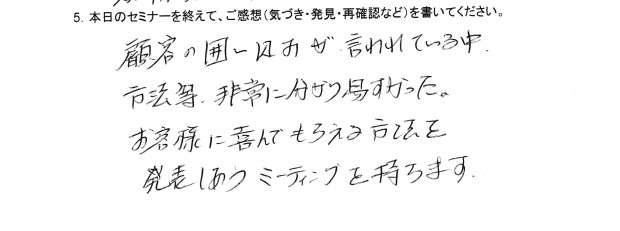 5. 本日のセミナーを終えて、ご感想(気づき・発見・再確認など)を書いてください。
顧客の囲い込みが言われている中、
方法等、非常に分かり易すかった。
お客様に喜んでもらえる方法を
発表しあうミーティングを持ちます。